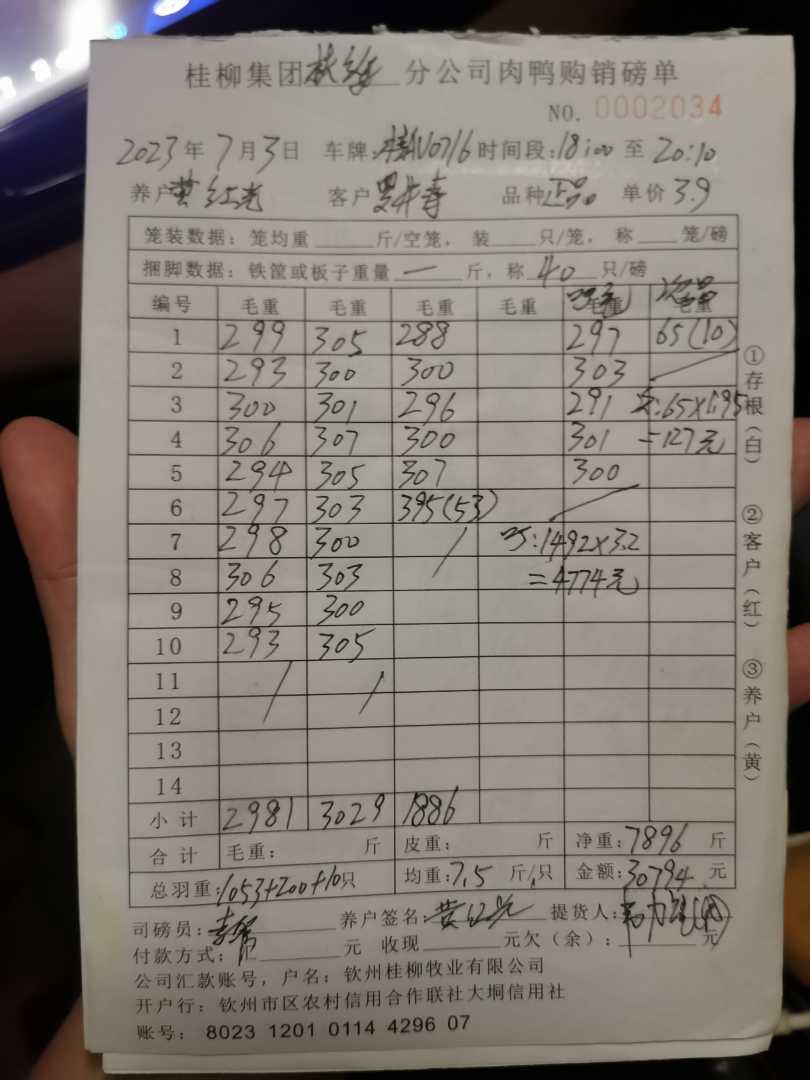 桂柳集团 分公司肉鸭购销磅单
NO. 0002034
2023年7月3日 车牌: AU0716 时间段:18:00至20:10
养户黄红光 客户 品种正品 单价3.9
笼装数据: 笼均重 斤/空笼, 装 只/笼, 称 笼/磅
捆脚数据: 铁筐或板子重量 一 斤, 称 40 只/磅
编号 毛重 毛重 毛重 毛重 毛重 毛重
次品
1 299 305 288 297 65(10)
2 293 300 300 303
3 300 301 296 291 次:65×1.95
4 306 307 300 301 =127元
5 294 305 307 300
6 297 303 395(53)
7 298 300 1492×3.2
8 306 303 =4774元
9 295 300
10 293 305
11
12
13
14
小计 2981 3029 1886
合计 毛重: 斤 皮重: 斤 净重:7896斤
总羽重:1053+200+10只 均重:7.5斤/只 金额:30794元
司磅员: 养户签名:黄红光 提货人:
付款方式:汇 元 收现 元欠(余): 元
公司汇款账号,户名:钦州桂柳牧业有限公司
开户行:钦州市区农村信用合作联社大垌信用社
账号: 8023 1201 0114 4296 07
①存根(白)
②客户(红)
③养户(黄)